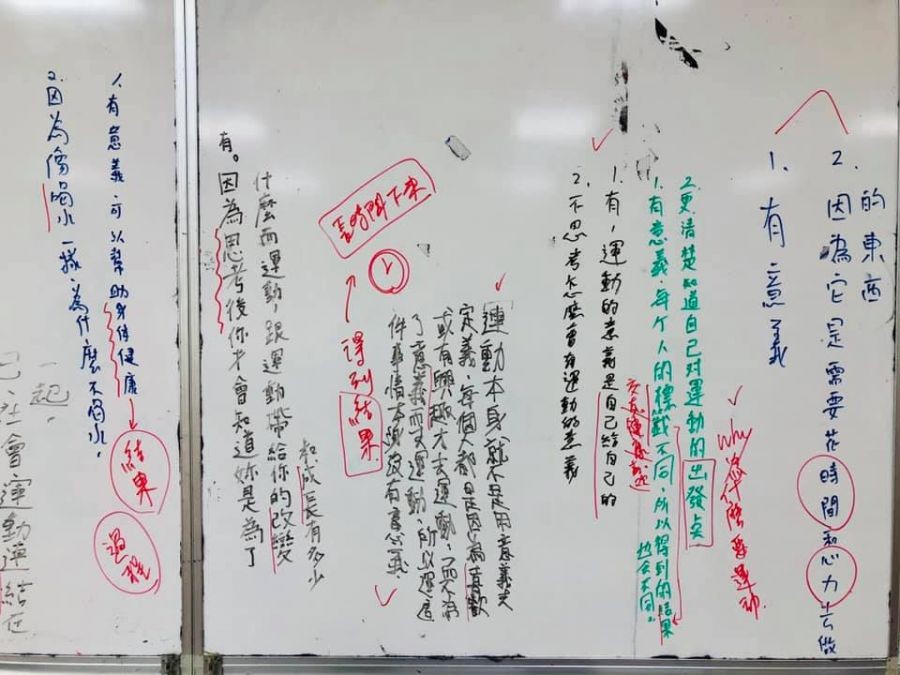 1. 有意義
2. 因為它是需要花時間和心力去做
的東西
why 為什麼要運動
1. 有意義,每個人的標籤不同,所以得到的結果
也會不同。
2. 更清楚知道自己對運動的出發點
1. 有,運動的意義是自己給自己的
2. 不思考怎麼會有運動的意義
運動本身就不是用意義去
定義,每個人都是因為喜歡
或有興趣才去運動,而不為
了意義而去運動,所以運這
件事情本身沒有意義
得到結果
長時間下來
和成長有多少
什麼而運動,跟運動帶給你的改變
有。因為思考後你才會知道妳是為了
1. 有意義,可以幫助身体健康
結果
過程
2. 因為像喝水一樣,為什麼不喝水。
一起。
己、社會運動連結在